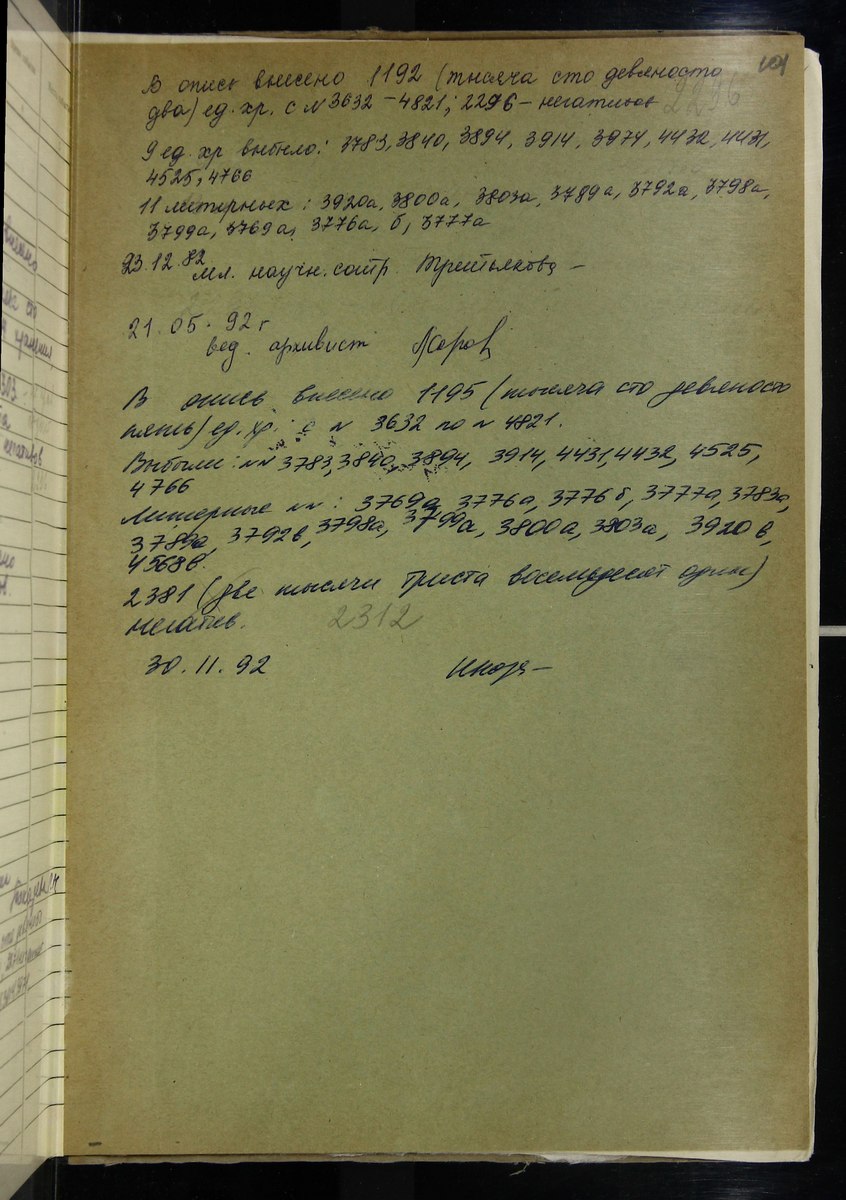 101
В опись внесено 1192 (тысяча сто девяносто
два) ед. хр. с № 3632 – 4821; 2296 – негативов 2296
9 ед. хр выбыло: 3783, 3840, 3894, 3914, 3974, 4432, 4431,
4525, 4766
11 литерных: 3920а, 3800а, 3803а, 3789а, 3792а, 3798а,
3799а, 3769а, 3776а, б, 3777а
23.12.82
мл. научн. сотр. Третьякова –
21.05.92 г
вед. архивист
В опись внесено 1195 (тысяча сто девяносто
пять) ед. хр.: с № 3632 по № 4821.
Выбыли: №№ 3783, 3840, 3894, 3914, 4431, 4432, 4525,
4766
Литерные №№: 3769а, 3776а, 3776б, 3777а, 3783а,
3789а, 3792в, 3798а, 3799а, 3800а, 3803а, 3920в,
4568в.
2381 (две тысячи триста восемьдесят один)
негатив. 2312
30.11.92